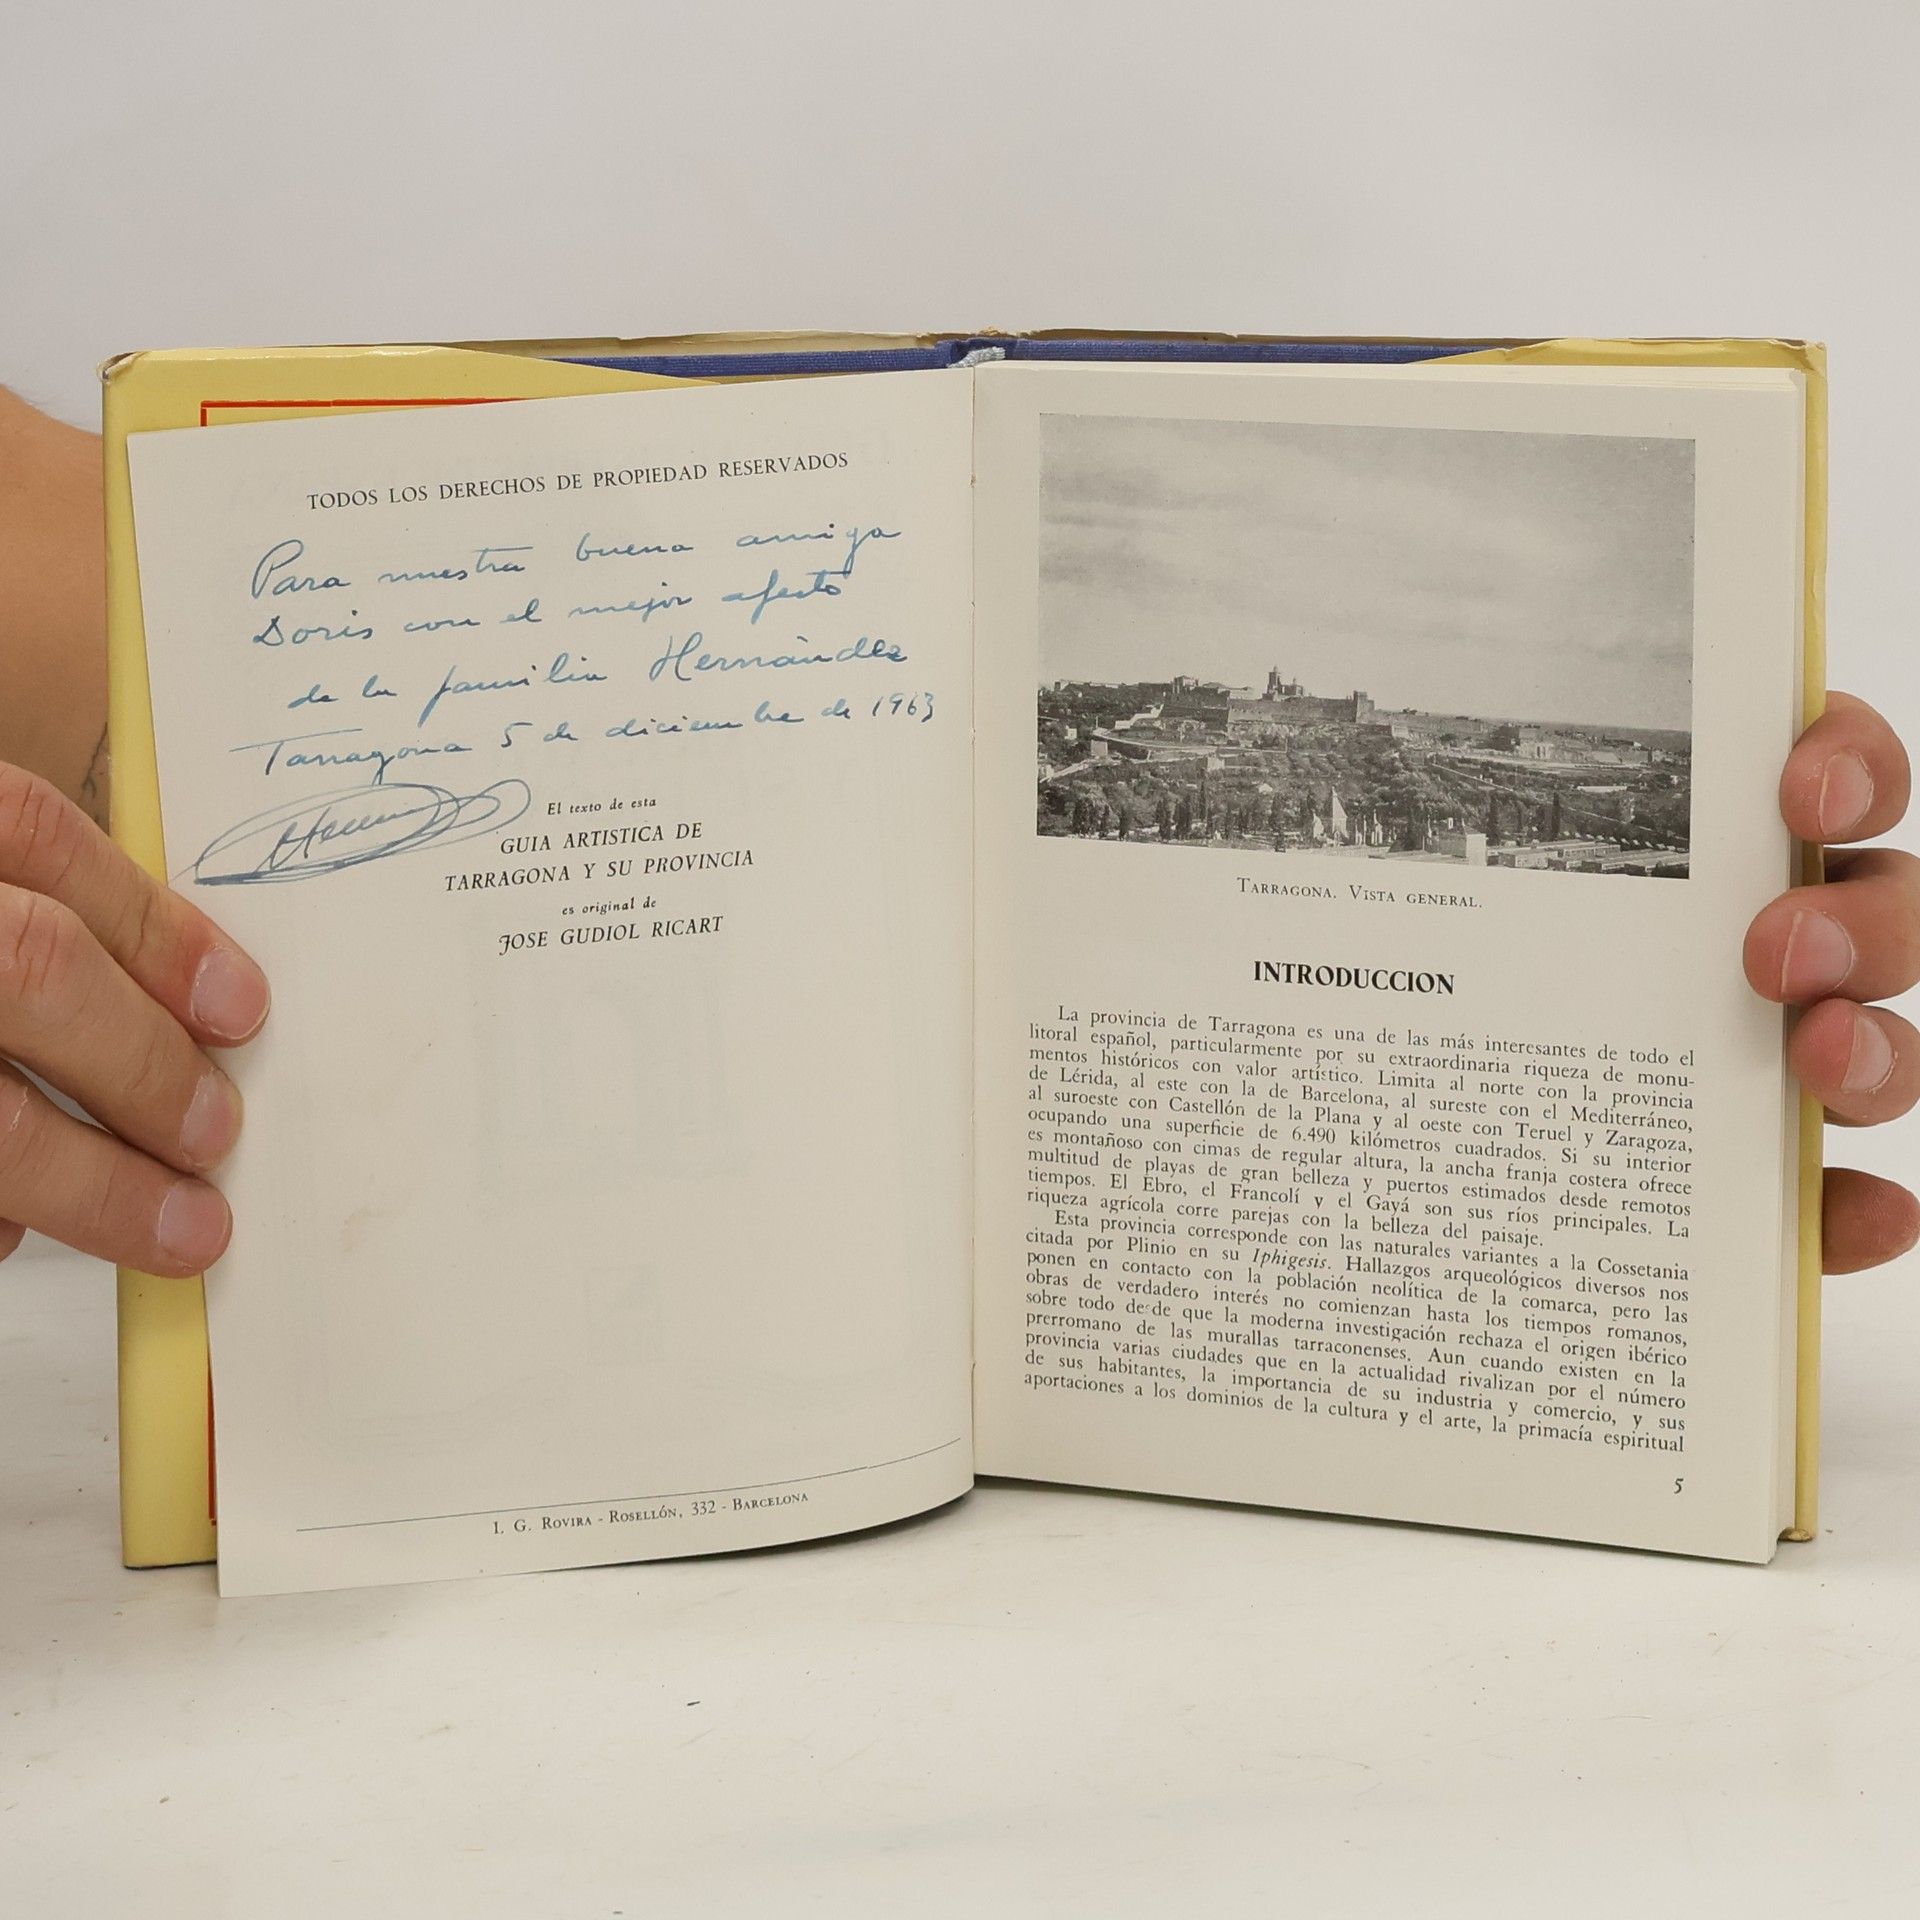 TODOS LOS DERECHOS DE PROPIEDAD RESERVADOS
Para nuestra buena amiga
Doris con el mejor afecto
de la familia Hernández
Tarragona 5 de diciembre de 1963
El texto de esta
GUIA ARTISTICA DE
TARRAGONA Y SU PROVINCIA
es original de
JOSE GUDIOL RICART
I. G. ROVIRA - ROSELLÓN, 332 - BARCELONA
TARRAGONA. VISTA GENERAL.
INTRODUCCION
La provincia de Tarragona es una de las más interesantes de todo el
litoral español, particularmente por su extraordinaria riqueza de monu-
mentos históricos con valor artístico. Limita al norte con la provincia
de Lérida, al este con la de Barcelona, al sureste con el Mediterráneo,
al suroeste con Castellón de la Plana y al oeste con Teruel y Zaragoza,
ocupando una superficie de 6.490 kilómetros cuadrados. Si su interior
es montañoso con cimas de regular altura, la ancha franja costera ofrece
multitud de playas de gran belleza y puertos estimados desde remotos
tiempos. El Ebro, el Francolí y el Gayá son sus ríos principales. La
riqueza agrícola corre parejas con la belleza del paisaje.
Esta provincia corresponde con las naturales variantes a la Cossetania
citada por Plinio en su Iphigesis. Hallazgos arqueológicos diversos nos
ponen en contacto con la población neolítica de la comarca, pero las
obras de verdadero interés no comienzan hasta los tiempos romanos,
sobre todo desde que la moderna investigación rechaza el origen ibérico
prerromano de las murallas tarraconenses. Aun cuando existen en la
provincia varias ciudades que en la actualidad rivalizan por el número
de sus habitantes, la importancia de su industria y comercio, y sus
aportaciones a los dominios de la cultura y el arte, la primacía espiritual
5